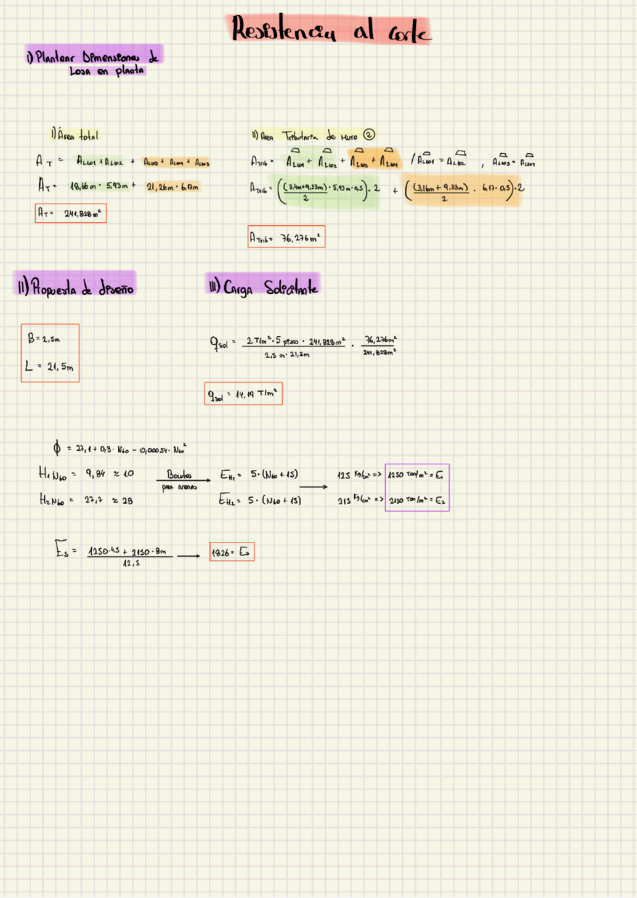 Resistencia al corte
I) Plantear Dimensiones de
Losa en planta
I) Área total
A_T = A_L101 + A_L102 + A_L103 + A_L104 + A_L105
A_T = 18,66m · 5,93m + 21,26m · 6,17m
A_T = 241,828m²
II) Area Tributaria de Muro ②
A_Trib = A_L101 + A_L102 + A_L103 + A_L104 / A_L101 = A_L102 , A_L103 = A_L104
A_Trib = ((3,4m+9,33m)/2 · 5,93m · 0,5) · 2 + ((3,16m + 9,33m)/2 · 6,17 · 0,5) · 2
A_Trib = 76,276m²
II) Propuesta de diseño
B = 2,5m
L = 21,5m
III) Carga Solicitante
q_sol = 2 T/m² · 5 pisos · 241,828m² / 2,5 m · 21,5m · 76,276m² / 241,828m²
q_sol = 14,19 T/m²
ϕ = 27,1 + 0,3 · N60 − 0,00054 · N60²
H1 N60 = 9,84 ≈ 10 Bowles para arenas → E_H1 = 5 · (N60 + 15) → 125 Kg/cm² => 1250 Ton/m² = E1
H2 N60 = 27,7 ≈ 28 E_H2 = 5 · (N60 + 15) 215 Kg/cm² => 2150 Ton/m² = E2
E_s = 1250 · 4,5 + 2150 · 8m / 12,5 → 1826 = E_s